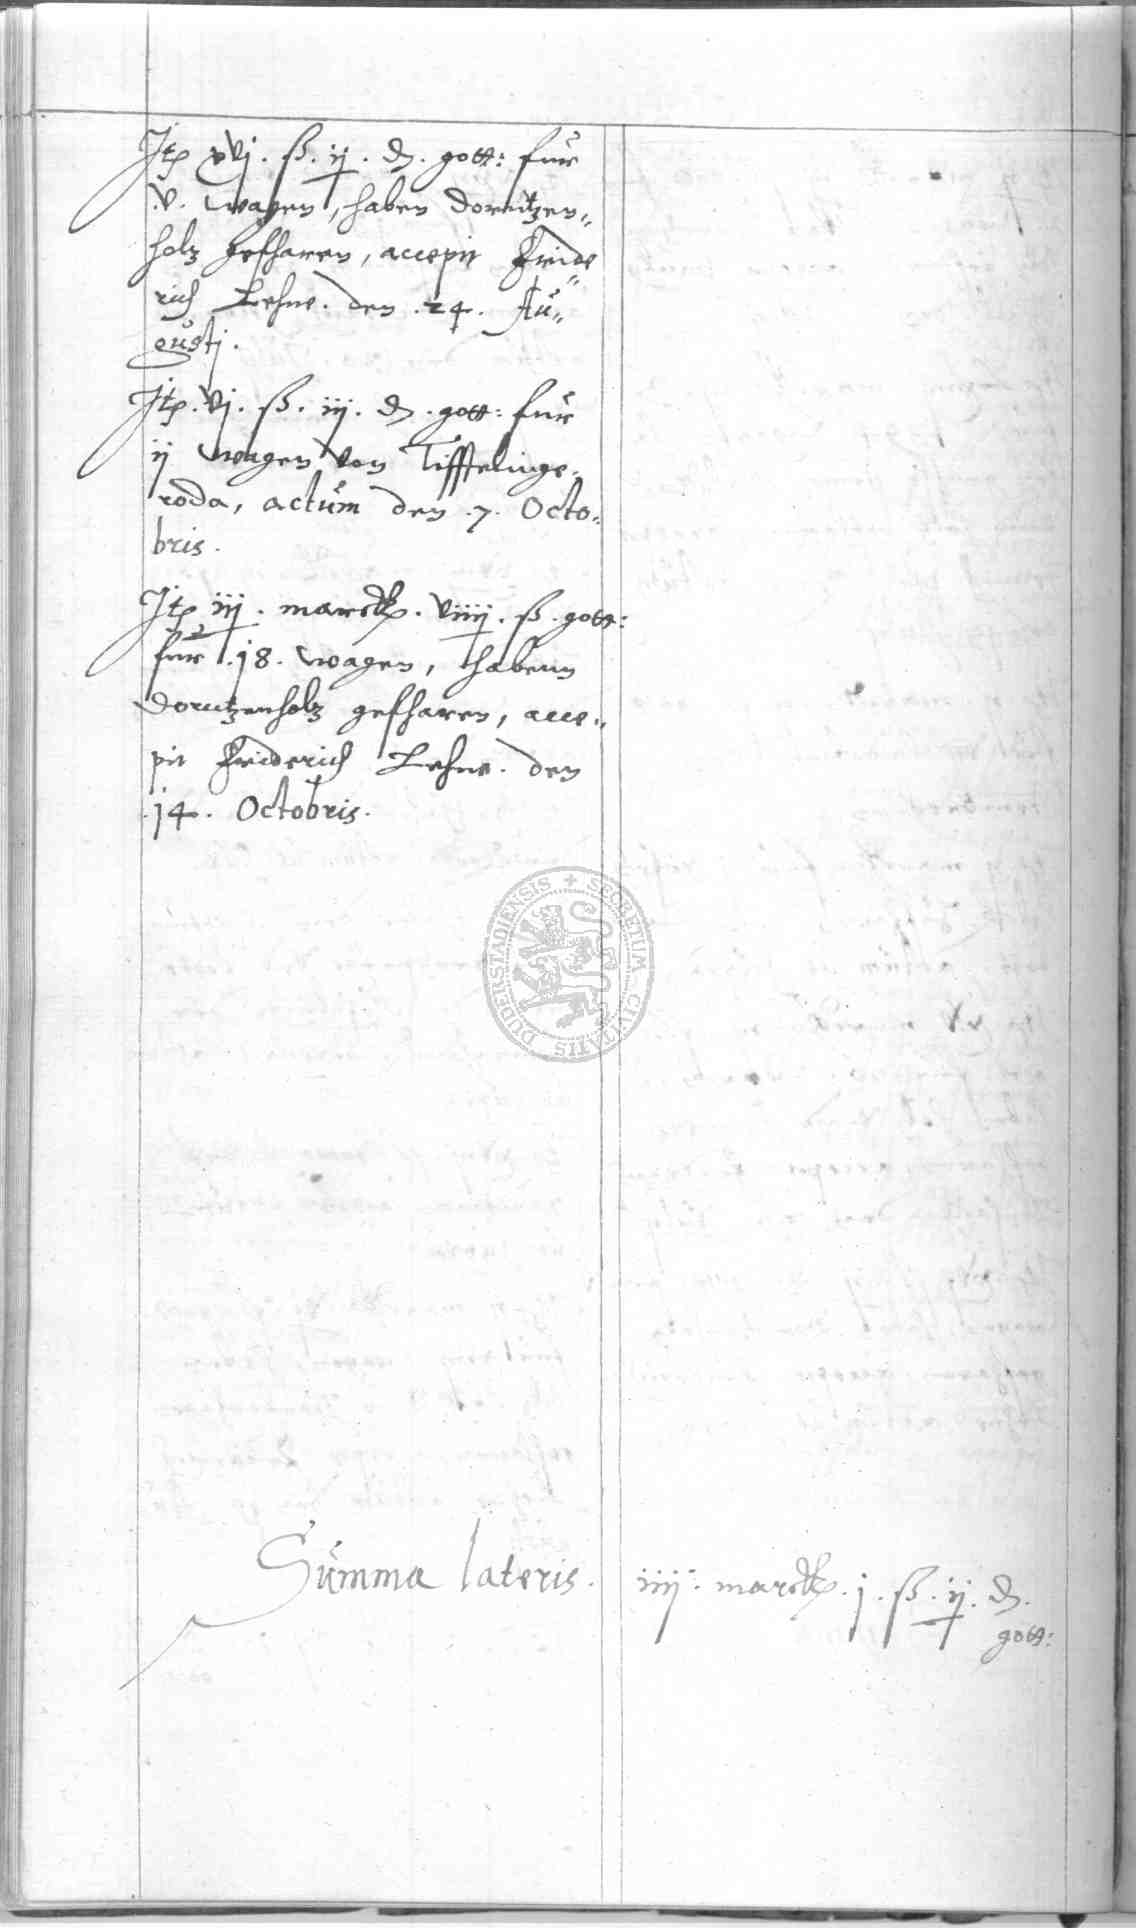 Itp xvj . ß . ij . d . gott: fur
.v. wagen, haben dorntzen„
holtz gefharen, accepit Fride„
rich Lehne. den .24. Au„
gustj.
Itp . vj . ß . iij . d . gott: fur
ij wagen von Tifftelinge„
roda, actum den .7. Octo„
bris.
Itp iij . marck . viiij . ß . gott:
fur .18. wagen, habenn
dorntzenholtz gefharen, acce„
pit Friderich Lehne. den
.14. Octobris.
SECRETUM CIVITATIS DUDERSTADIENSIS
Summa lateris. iiij . marck . j . ß . ij . d .
gott: